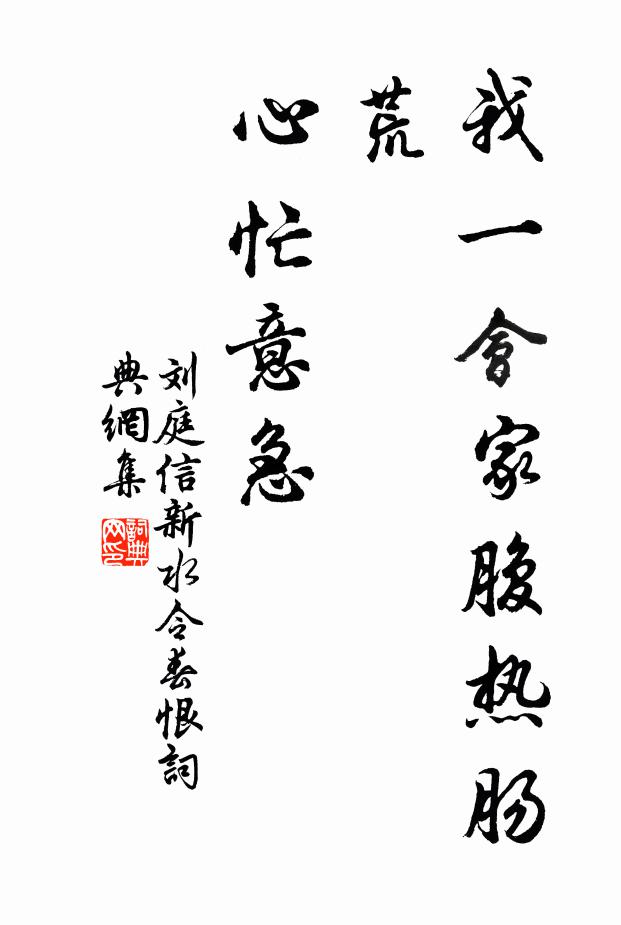 我一會家腹热肠
荒
心忙意急
刘庭信新水令春恨詞
典網集
詞典网印